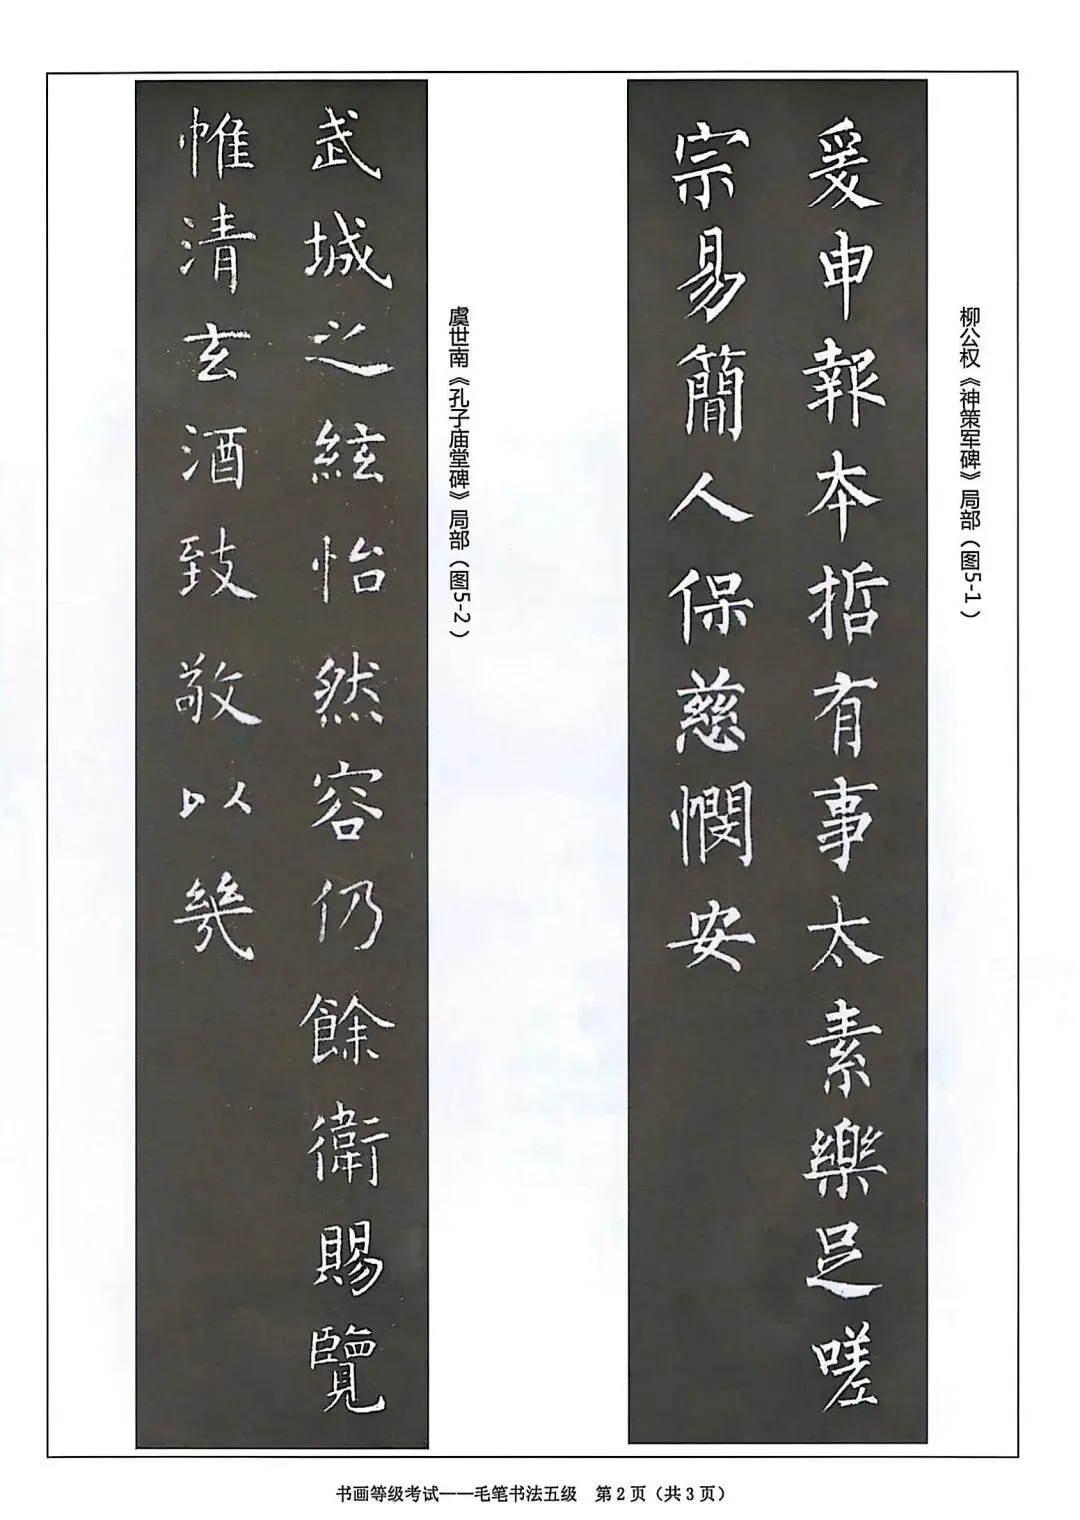 爰申報本哲有事太素樂足嗟
宗易簡人保慈憫安
柳公权《神策军碑》局部（图5-1）
武城之絃怡然容仍餘衛賜覽
帷清玄酒致敬以幾
虞世南《孔子庙堂碑》局部（图5-2）
书画等级考试——毛笔书法五级 第2页（共3页）